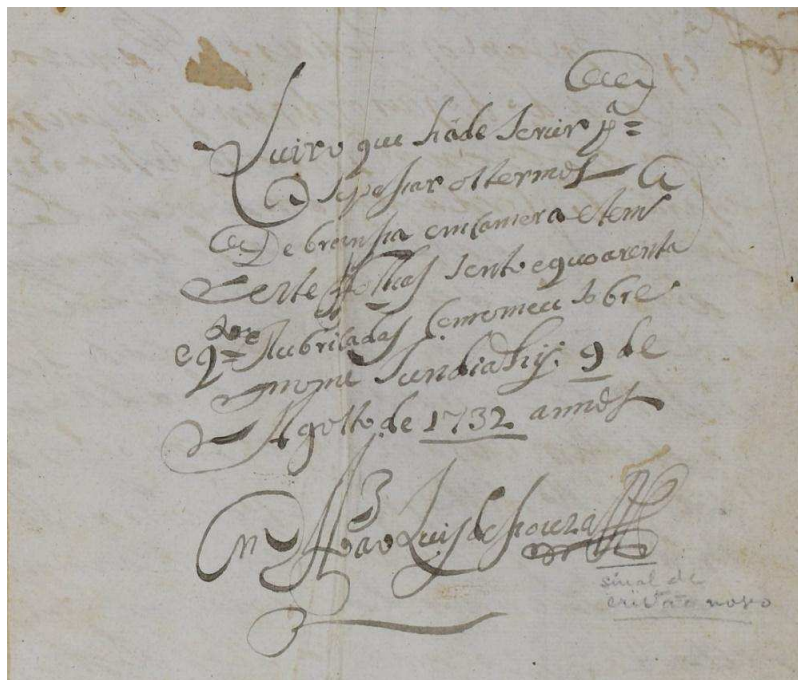 Luiro que hade servir pª=
a se pasar os termos
De breansa em camera e tem
este folhas sento e quoarenta
e q=
Rubricadas Comomeu sobre
nome Jundiahy. 9 de
Agosto de 1732 annos
Luis de Souza
sinal de
cristão novo